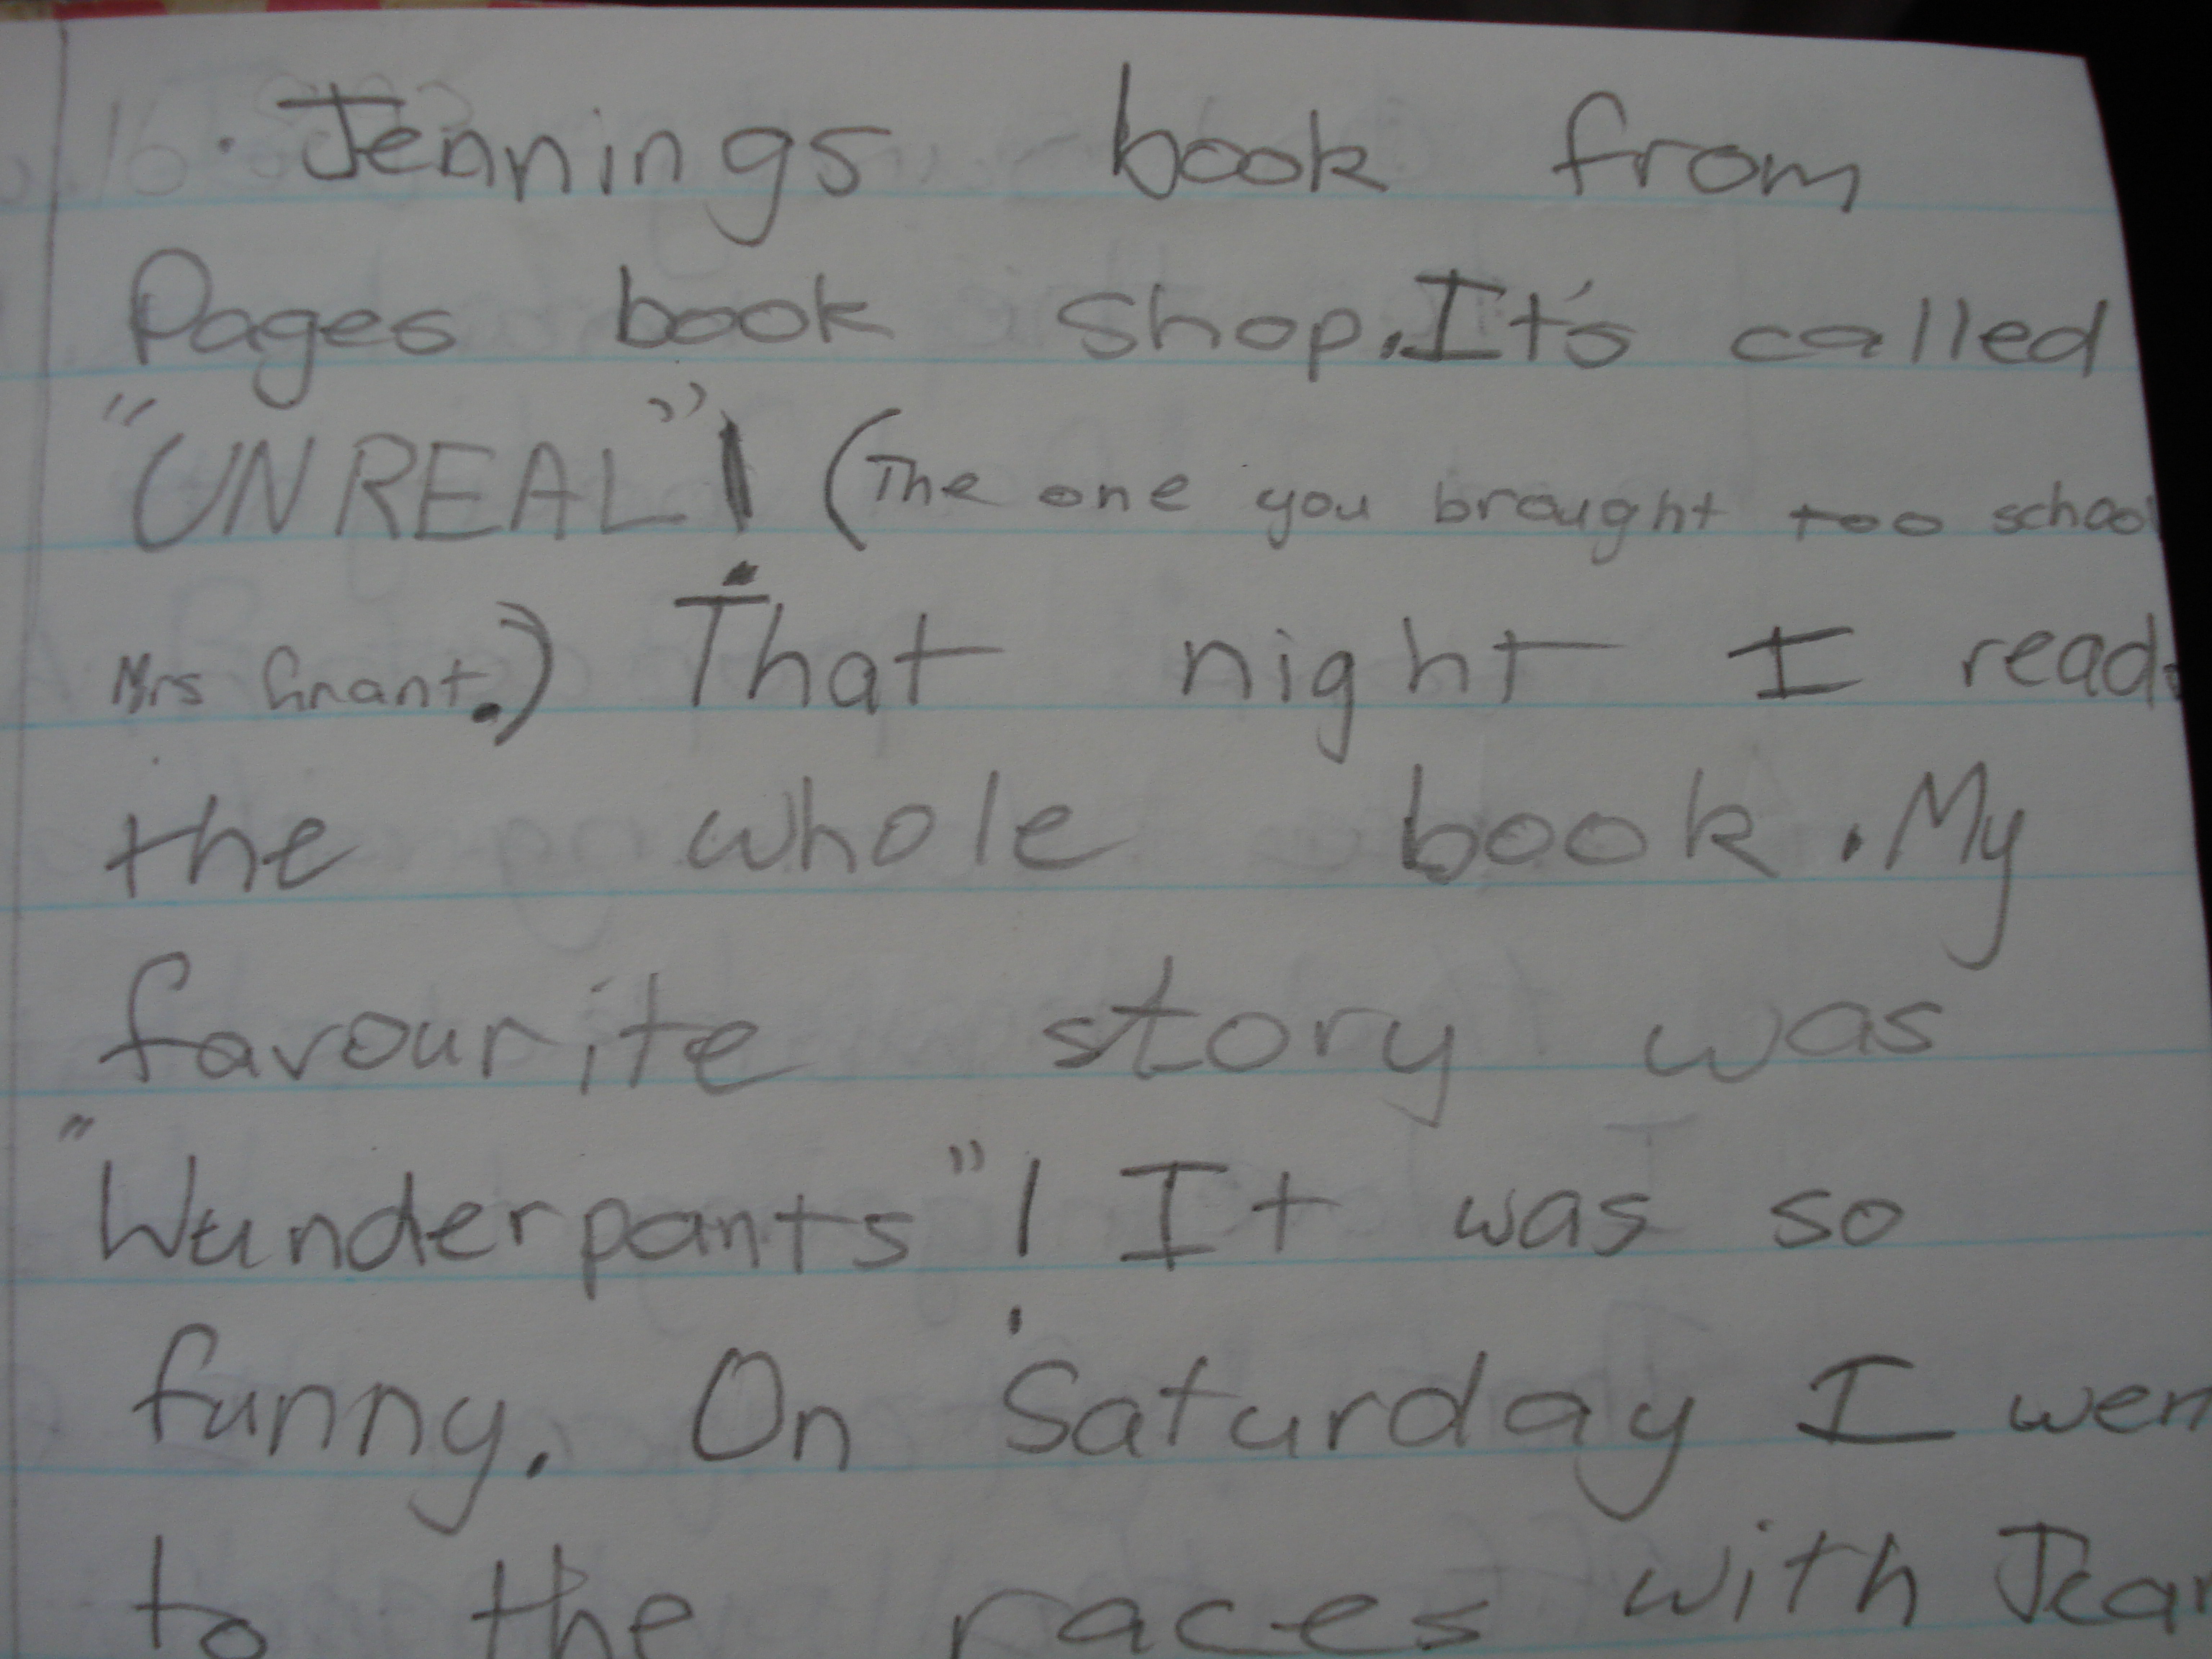 . Jennings book from
Pages book shop. It's called
"UNREAL"! (The one you brought too school
Mrs Grant.) That night I read
the whole book. My
favourite story was
"Wunderpants"! It was so
funny. On Saturday I wen
to the races with